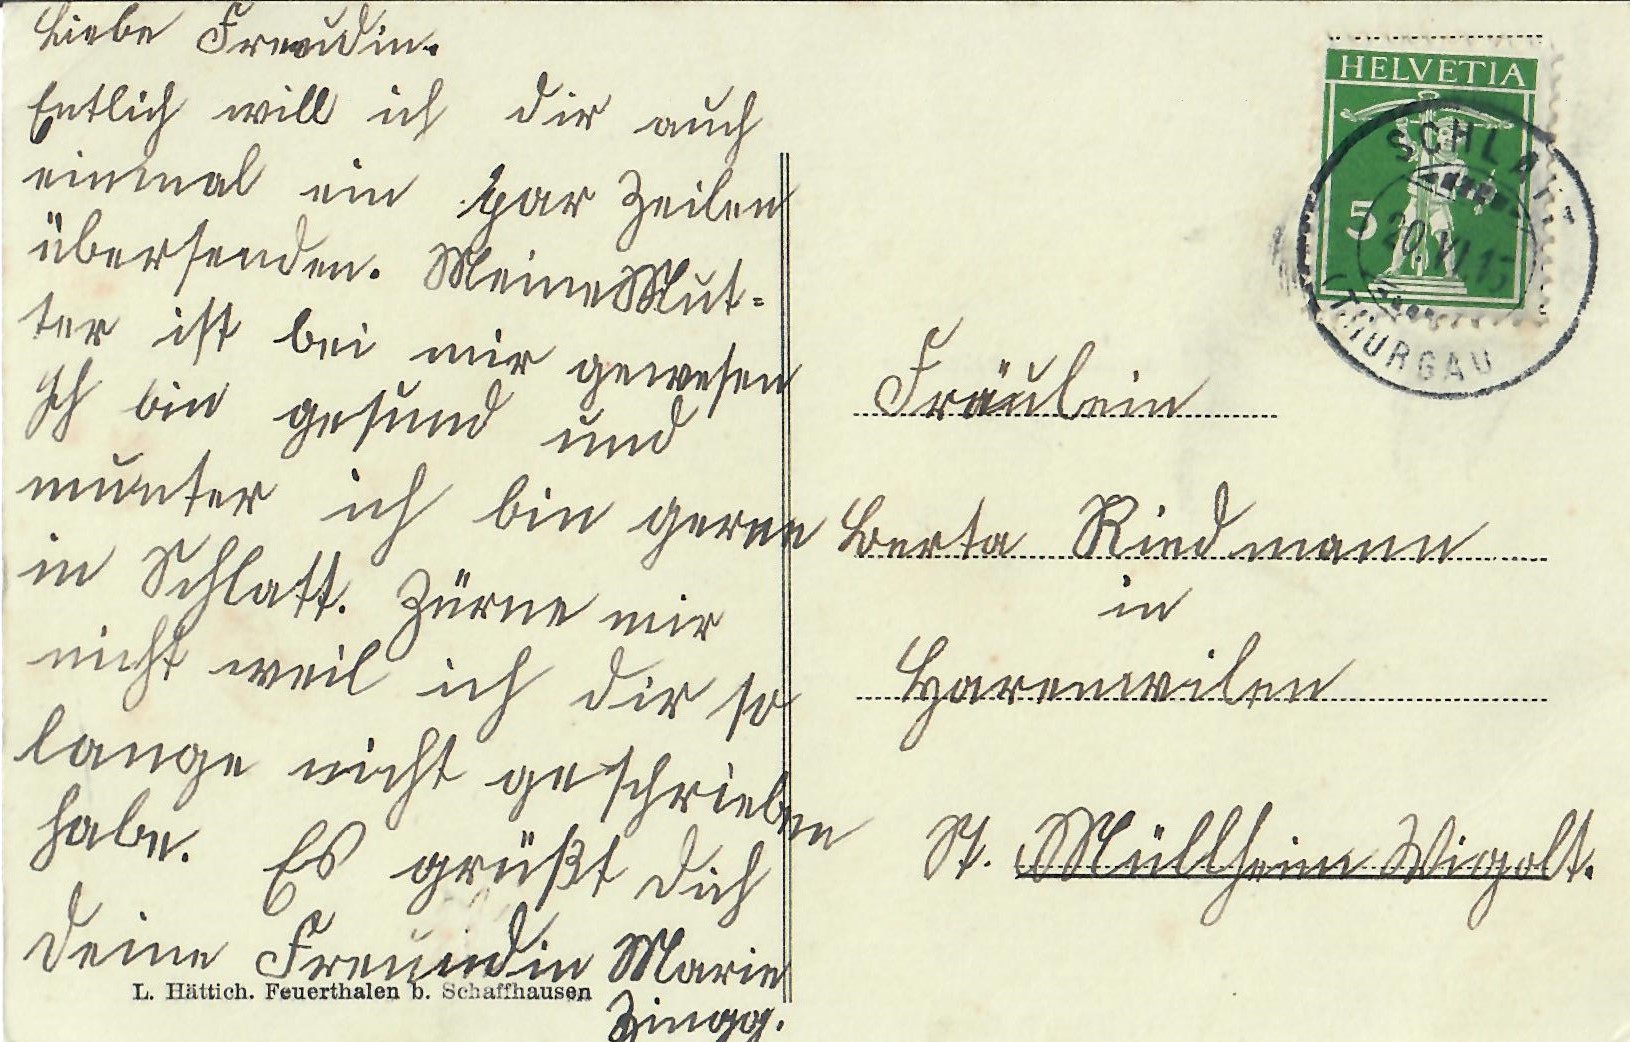 Liebe Freudin.
Entlich will ich dir auch
einmal ein par Zeilen
übersenden. Meine Mut-
ter ist bei mir gewesen
Ich bin gesund und
munter ich bin gerne
in Schlatt. Zürne mir
nicht weil ich dir so
lange nicht geschrieben
habe. Es grüßt dich
deine Freundin Marie
Zingg.
L. Hättich. Feuerthalen b. Schaffhausen
HELVETIA
5
SCHLATT
20.VI.15
(THURGAU)
Fräulein
Berta Riedmann
in
Harenwilen
St. Müllheim Wigolt.